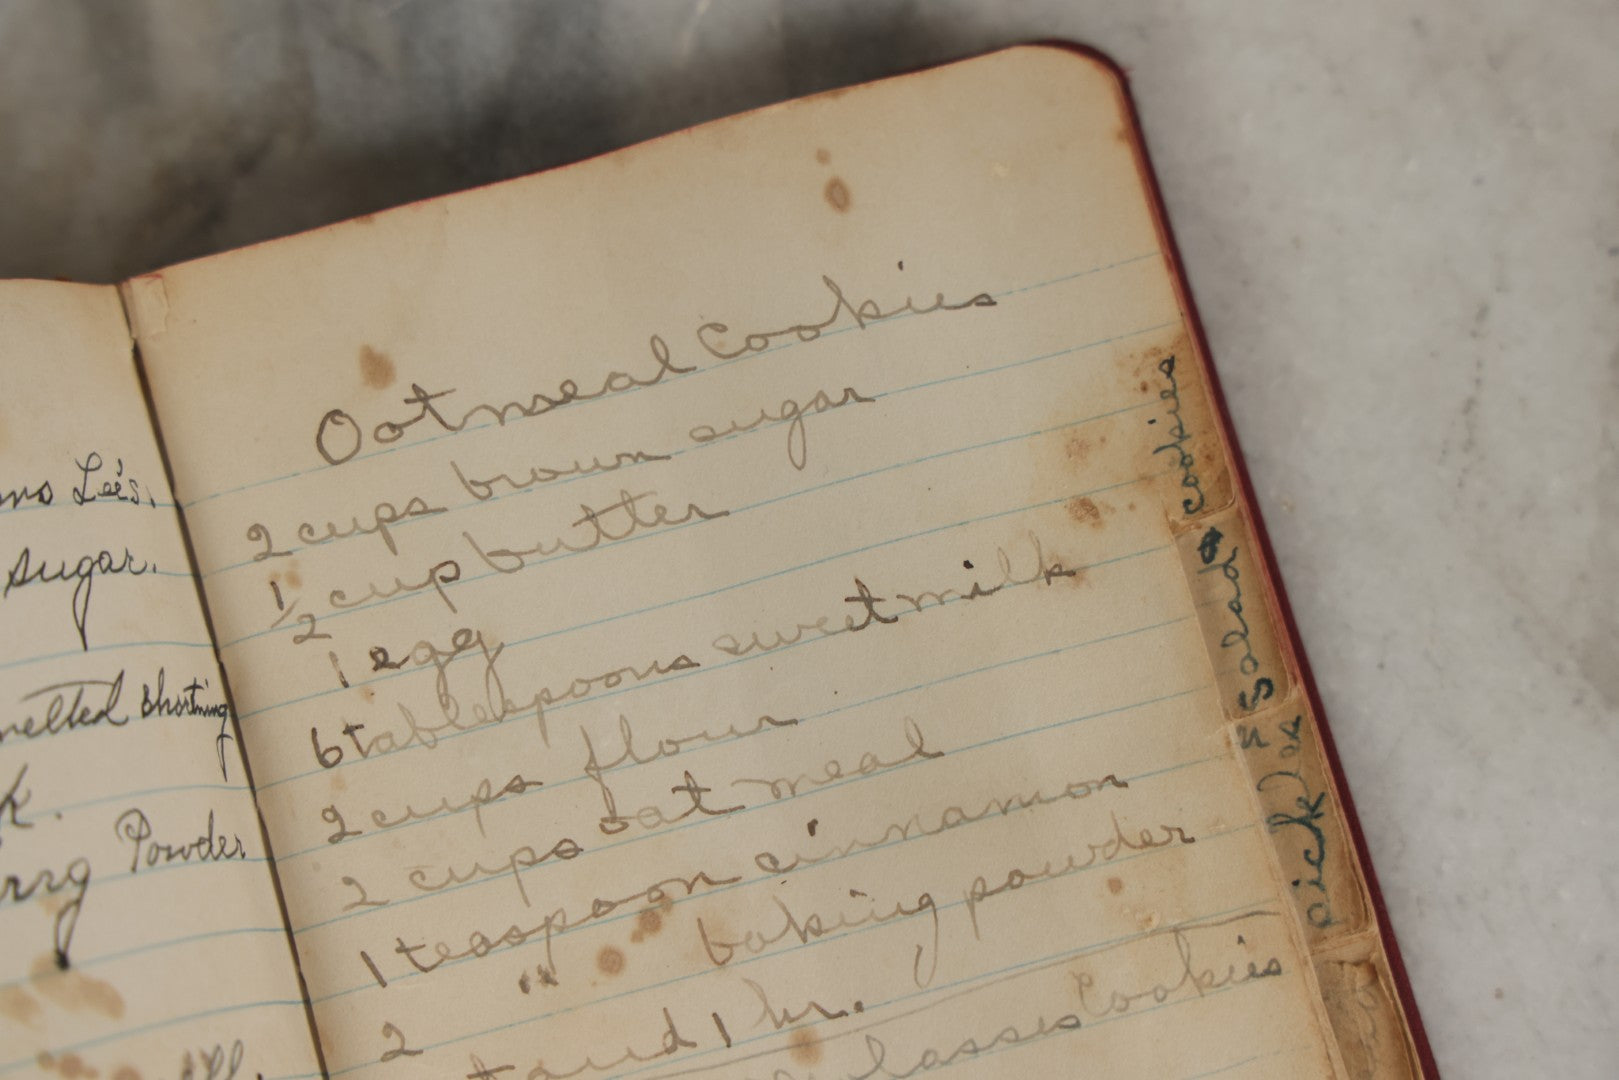 Lee's.
sugar.
melted shortning
Powder
Oatmeal Cookies
2 cups brown sugar
1/2 cup butter
1 egg
6 tablespoons sweet milk
2 cups flour
2 cups oat meal
1 teaspoon cinnamon
2 " baking powder
stand 1 hr.
Cookies
cookies
Salads
Pickles